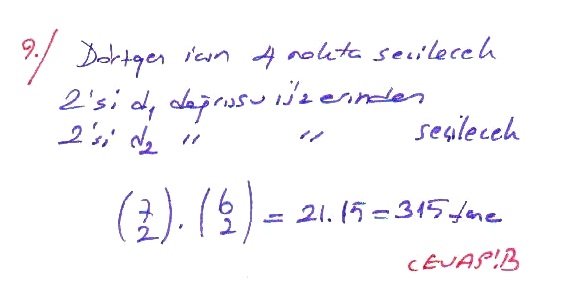 9./ Dörtgen için 4 nokta seçilecek
2'si d₁ doğrusu üzerinden
2'si d₂ " " seçilecek
(7 2) . (6 2) = 21.15 = 315 tane
CEVAP: B